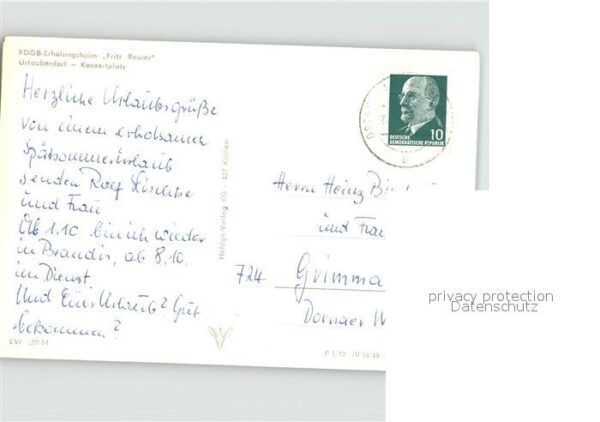 FDGB-Erholungsheim „Fritz Reuter"
Urlauberdorf — Konzertplatz
Herzliche Urlaubsgrüße
von einem erholsamen
Spätsommerurlaub
senden Rolf
und Frau
Ab 1.10 bin ich wieder
in Brandis, ab 8.10.
im Dienst
Und Eure Urlaub? Gut
bekommen?
EVP -,20 M
Heldge-Verlag KG 437 Köthen
10
DEUTSCHE
DEMOKRATISCHE REPUBLIK
Herrn Heinz
und Frau
724 Grimma
Dornaer W
privacy protection
Datenschutz